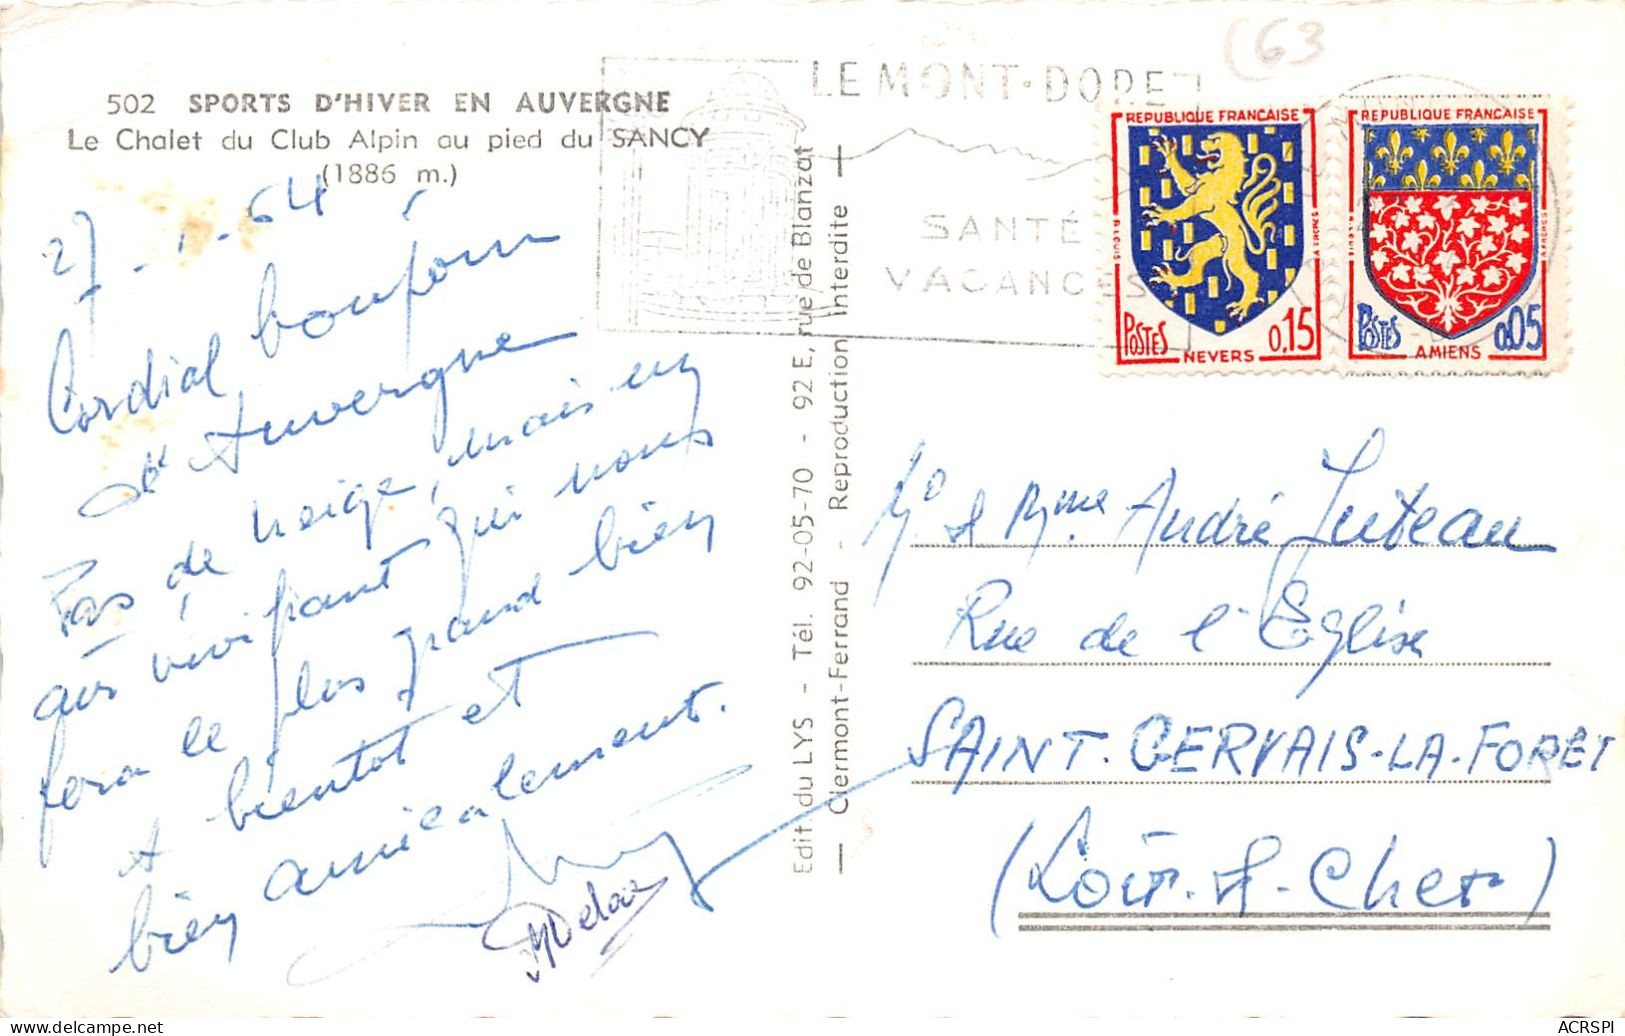 502 SPORTS D'HIVER EN AUVERGNE
Le Chalet du Club Alpin au pied du SANCY
(1886 m.)
27-1-64
Cordial bonjour
d'Auvergne
Pas de neige, mais un
air vivifiant qui nous
fera le plus grand bien
A bientot et
bien amicalement.
Edit. du LYS - Tél. 92-05-70 - 92 E, rue de Blanzat
— Clermont-Ferrand - Reproduction Interdite —
(63
LE MONT-DORE
SANTÉ
VACANCES
REPUBLIQUE FRANÇAISE
POSTES
0,15
NEVERS
REPUBLIQUE FRANÇAISE
POSTES
0,05
AMIENS
Mr & Mme André Luteau
Rue de l'Eglise
SAINT-GERVAIS-LA-FORÊT
(Loir-&-Cher)
ACRSPI